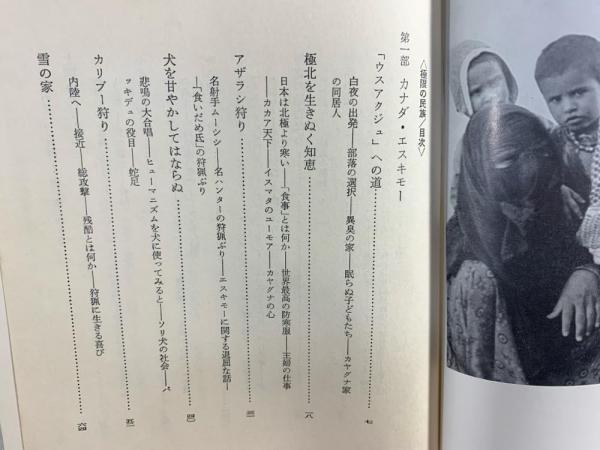 〈極限の民族／目次〉
第一部 カナダ・エスキモー
「ウスアクジュ」への道………七
白夜の出発――部落の選択――異臭の家――眠らぬ子どもたち――カヤグナ家
の同居人
極北を生きぬく知恵………一八
日本は北極より寒い――「食事」とは何か――世界最高の防寒服――主婦の仕事
――カカア天下――イスマタのユーモア――カヤグナの心
アザラシ狩り………三一
名射手ムーシシ――名ハンターの狩猟ぶり――エスキモーに関する退屈な話――
「食いだめ氏」の狩猟ぶり
犬を甘やかしてはならぬ………四一
悲鳴の大合唱――ヒューマニズムを犬に使ってみると――ソリ犬の社会――パ
ッキデュの役目――蛇足
カリブー狩り………五一
内陸へ――接近――総攻撃――残酷とは何か――狩猟に生きる喜び
雪の家………六四